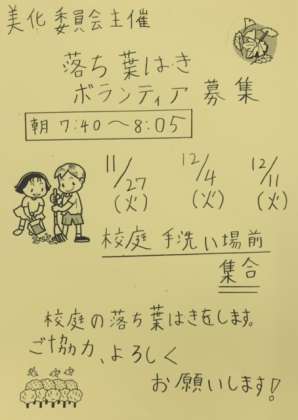 美化委員会主催
落ち葉はき
ボランティア募集
朝 7:40〜8:05
11/27 12/4 12/11
(火) (火) (火)
校庭 手洗い場前
集合
校庭の落ち葉はきをします。
ご協力、よろしく
お願いします!